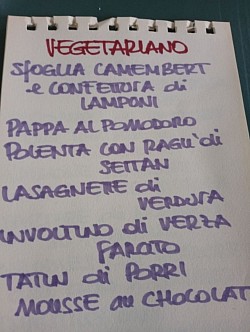 VEGETARIANO
SFOGLIA CAMEMBERT
e CONFETTURA di
LAMPONI
PAPPA AL POMODORO
POLENTA CON RAGU' di
SEITAN
LASAGNETTE di
VERDURA
INVOLTINO di VERZA
FARCITO
TATIN di PORRI
MOUSSE au CHOCOLAT